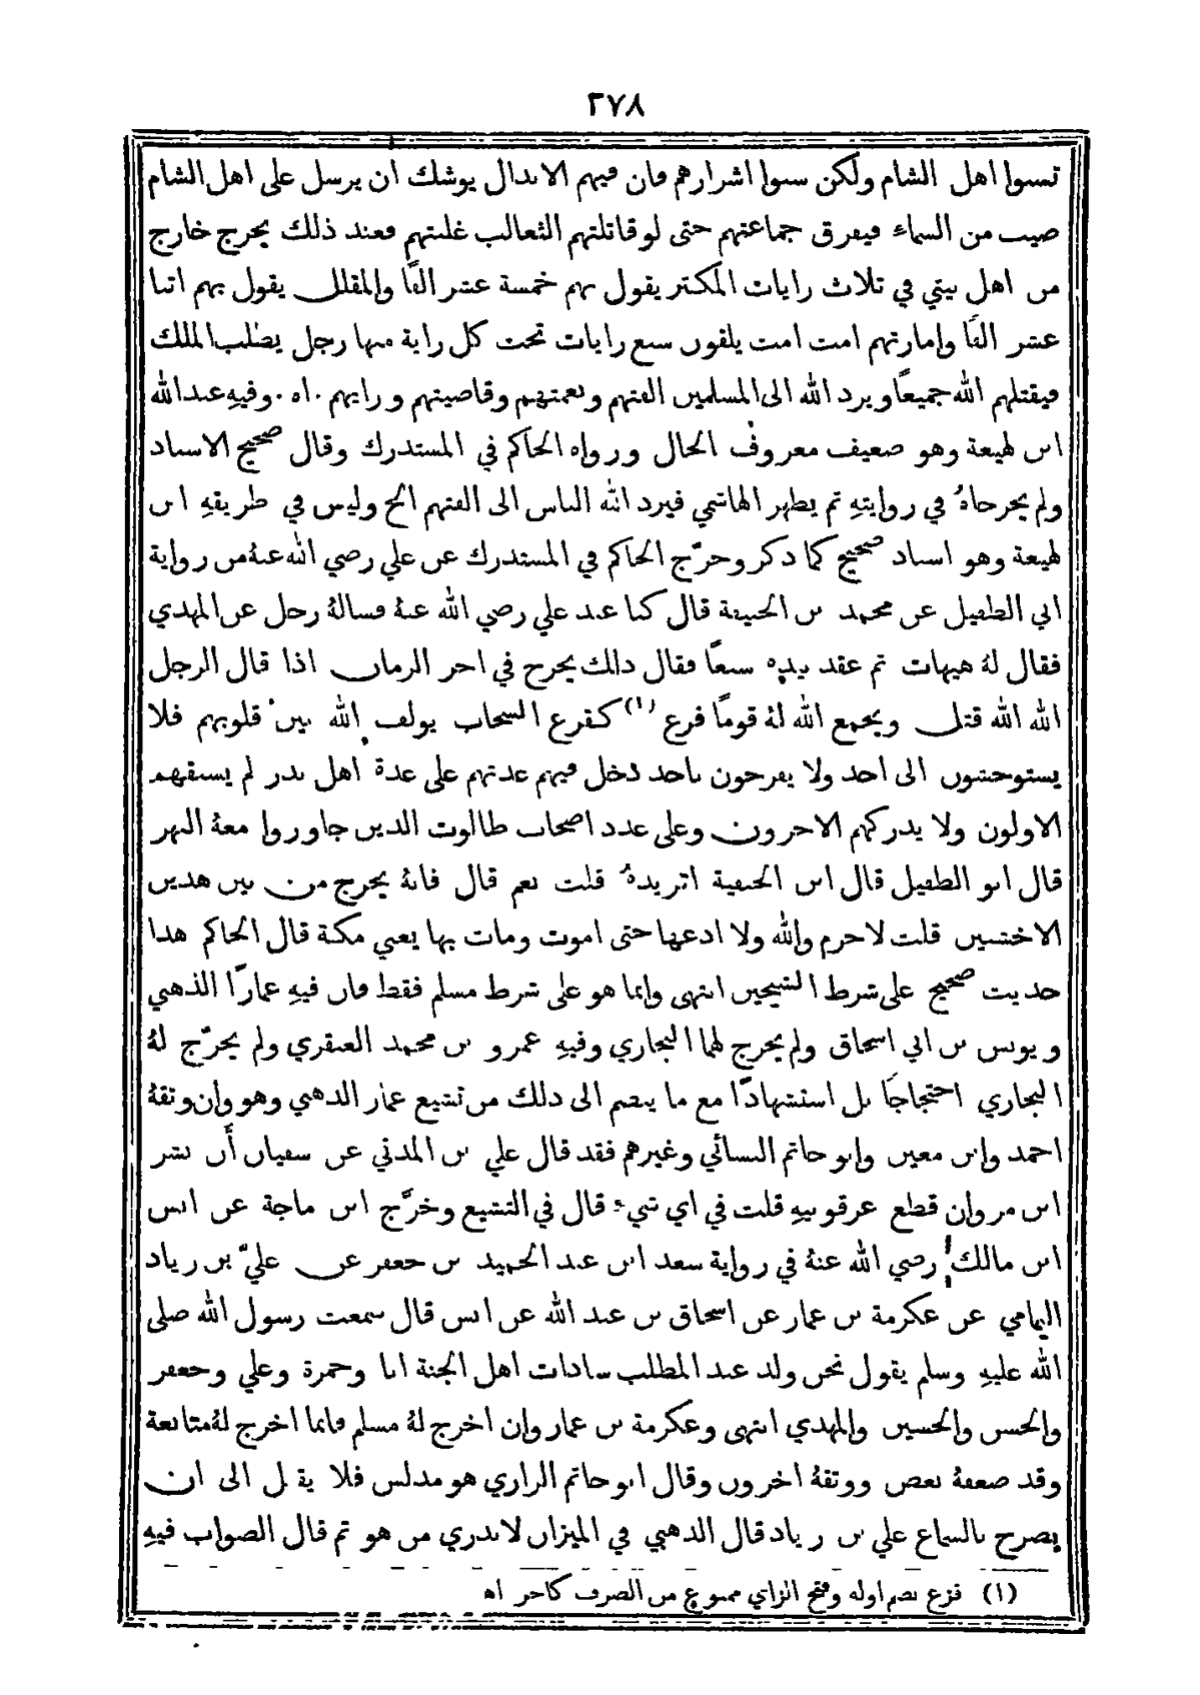 ٢٧٨
تسبوا اهل الشام ولكن سبوا اشرارهم فان فيهم الابدال يوشك ان يرسل على اهل الشام
صيب من السماء فيفرق جماعتهم حتى لو قاتلتهم الثعالب غلبتهم فعند ذلك يخرج خارج
من اهل بيتي في ثلاث رايات المكثر يقول بهم خمسة عشر الفًا والمقلل يقول بهم اثنا
عشر الفًا وامارتهم امت امت يلقون سبع رايات تحت كل راية منها رجل يطلب الملك
فيقتلهم الله جميعًا ويرد الله الى المسلمين الفتهم ونعمتهم وقاصيتهم ورايهم ٠اه٠ وفيهِ عبد الله
ابن لهيعة وهو ضعيف معروف الحال ورواه الحاكم في المستدرك وقال صحيح الاسناد
ولم يخرجاهُ في روايتهِ ثم يظهر الهاشمي فيرد الله الناس الى الفتهم الخ وليس في طريقهِ ابن
لهيعة وهو اسناد صحيح كما ذكر وخرّج الحاكم في المستدرك عن علي رضي الله عنهُ من رواية
ابي الطفيل عن محمد بن الحنيفة قال كنا عند علي رضي الله عنهُ فسالهُ رجل عن المهدي
فقال لهُ هيهات ثم عقد بيده سبعًا فقال ذلك يخرج في اخر الزمان اذا قال الرجل
الله الله قتل ويجمع الله لهُ قومًا قزع (١) كقزع السحاب يولف الله بين قلوبهم فلا
يستوحشون الى احد ولا يفرحون باحد دخل فيهم عدتهم على عدة اهل بدر لم يسبقهم
الاولون ولا يدركهم الاخرون وعلى عدد اصحاب طالوت الذين جاوزوا معهُ النهر
قال ابو الطفيل قال ابن الحنفية اتريدهُ قلت نعم قال فانهُ يخرج من بين هذين
الاخشبين قلت لا جرم والله ولا ادعها حتى اموت ومات بها يعني مكة قال الحاكم هذا
حديث صحيح على شرط الشيخين انتهى وانما هو على شرط مسلم فقط فان فيهِ عمارًا الذهبي
ويونس بن ابي اسحاق ولم يخرج لهما البخاري وفيهِ عمرو بن محمد العبقري ولم يخرّج لهُ
البخاري احتجاجًا بل استشهادًا مع ما ينضم الى ذلك من تشيع عمار الذهبي وهو وان وثقهُ
احمد وابن معين وابو حاتم النسائي وغيرهم فقد قال علي بن المدني عن سفيان أن بشر
ابن مروان قطع عرقوبيهِ قلت في اي شيء قال في التشيع وخرَّج ابن ماجة عن انس
ابن مالك رضي الله عنهُ في رواية سعد ابن عبد الحميد بن جعفر عن عليّ بن زياد
اليمامي عن عكرمة بن عمار عن اسحاق بن عبد الله عن انس قال سمعت رسول الله صلى
الله عليهِ وسلم يقول نحن ولد عبد المطلب سادات اهل الجنة انا وحمزة وعلي وجعفر
والحسن والحسين والمهدي انتهى وعكرمة بن عمار وان اخرج لهُ مسلم فانما اخرج لهُ متابعة
وقد ضعفهُ بعض ووثقهُ اخرون وقال ابو حاتم الرازي هو مدلس فلا يقبل الى ان
يصرح بالسماع علي بن زياد قال الذهبي في الميزان لا ندري من هو ثم قال الصواب فيهِ
(١) قزع بضم اوله وفتح الزاي ممنوع من الصرف كاخر اه